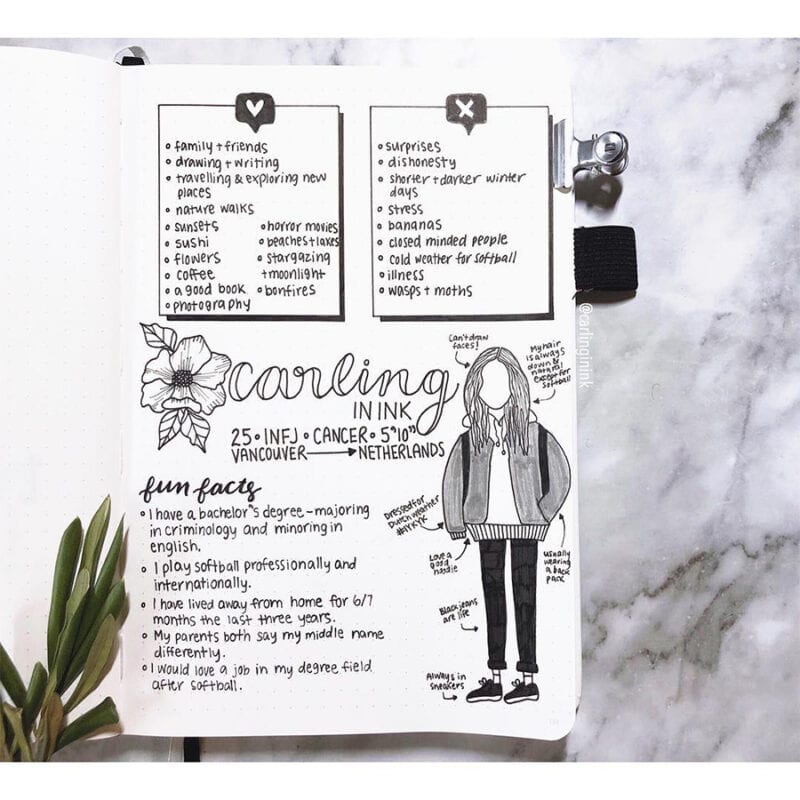 family + friends
drawing + writing
travelling & exploring new
places
nature walks
sunsets
sushi
flowers
coffee
a good book
photography
horror movies
beaches + lakes
stargazing
+ moonlight
bonfires
surprises
dishonesty
shorter + darker winter
days
stress
bananas
closed minded people
cold weather for softball
illness
wasps + moths
carling
IN INK
25 • INFJ • CANCER • 5'10"
VANCOUVER → NETHERLANDS
fun facts
I have a bachelor's degree - majoring
in criminology and minoring in
english.
I play softball professionally and
internationally.
I have lived away from home for 6/7
months the last three years.
My parents both say my middle name
differently.
I would love a job in my degree field
after softball.
Can't draw
faces!
My hair
is always
down &
natural
except for
softball
Dressed for
Dutch weather
#IYKYK
Love a
good
hoodie
usually
wearing
a back
pack
Black jeans
are life
Always in
sneakers
@carlinginink